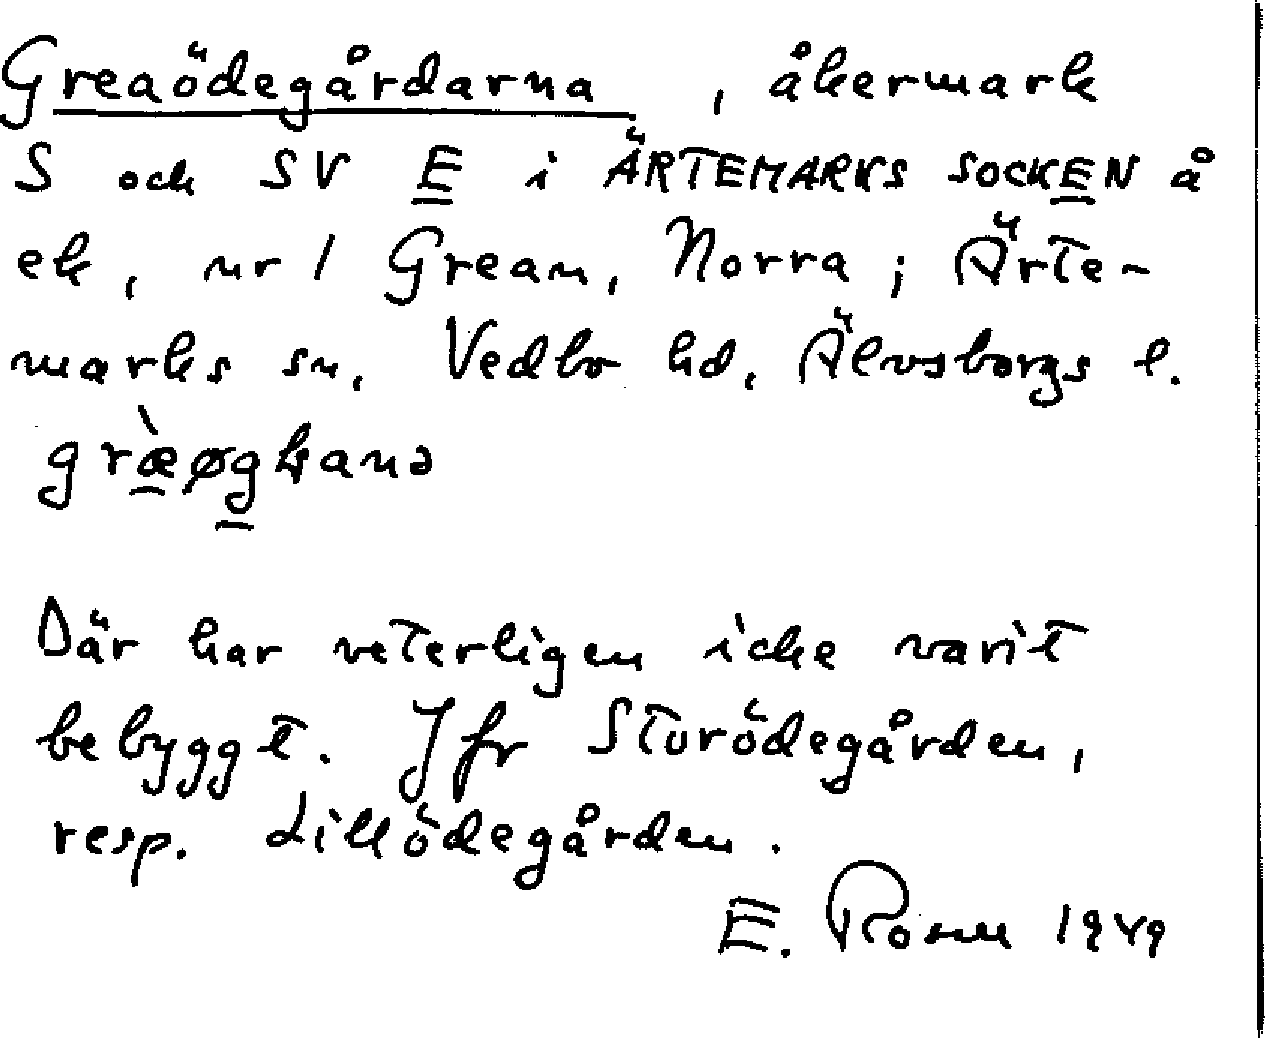 Greaödegårdarna, åkermark
S och SV E i ÄRTEMARKS SOCKEN å
ek, nr 1 Grean, Norra; Ärte-
marks sn, Vedbo hd, Älvsborgs l.
græøgḱanə
Där har veterligen icke varit
bebyggt. Jfr Storödegården,
resp. Lillödegården.
E. Rosell 1949